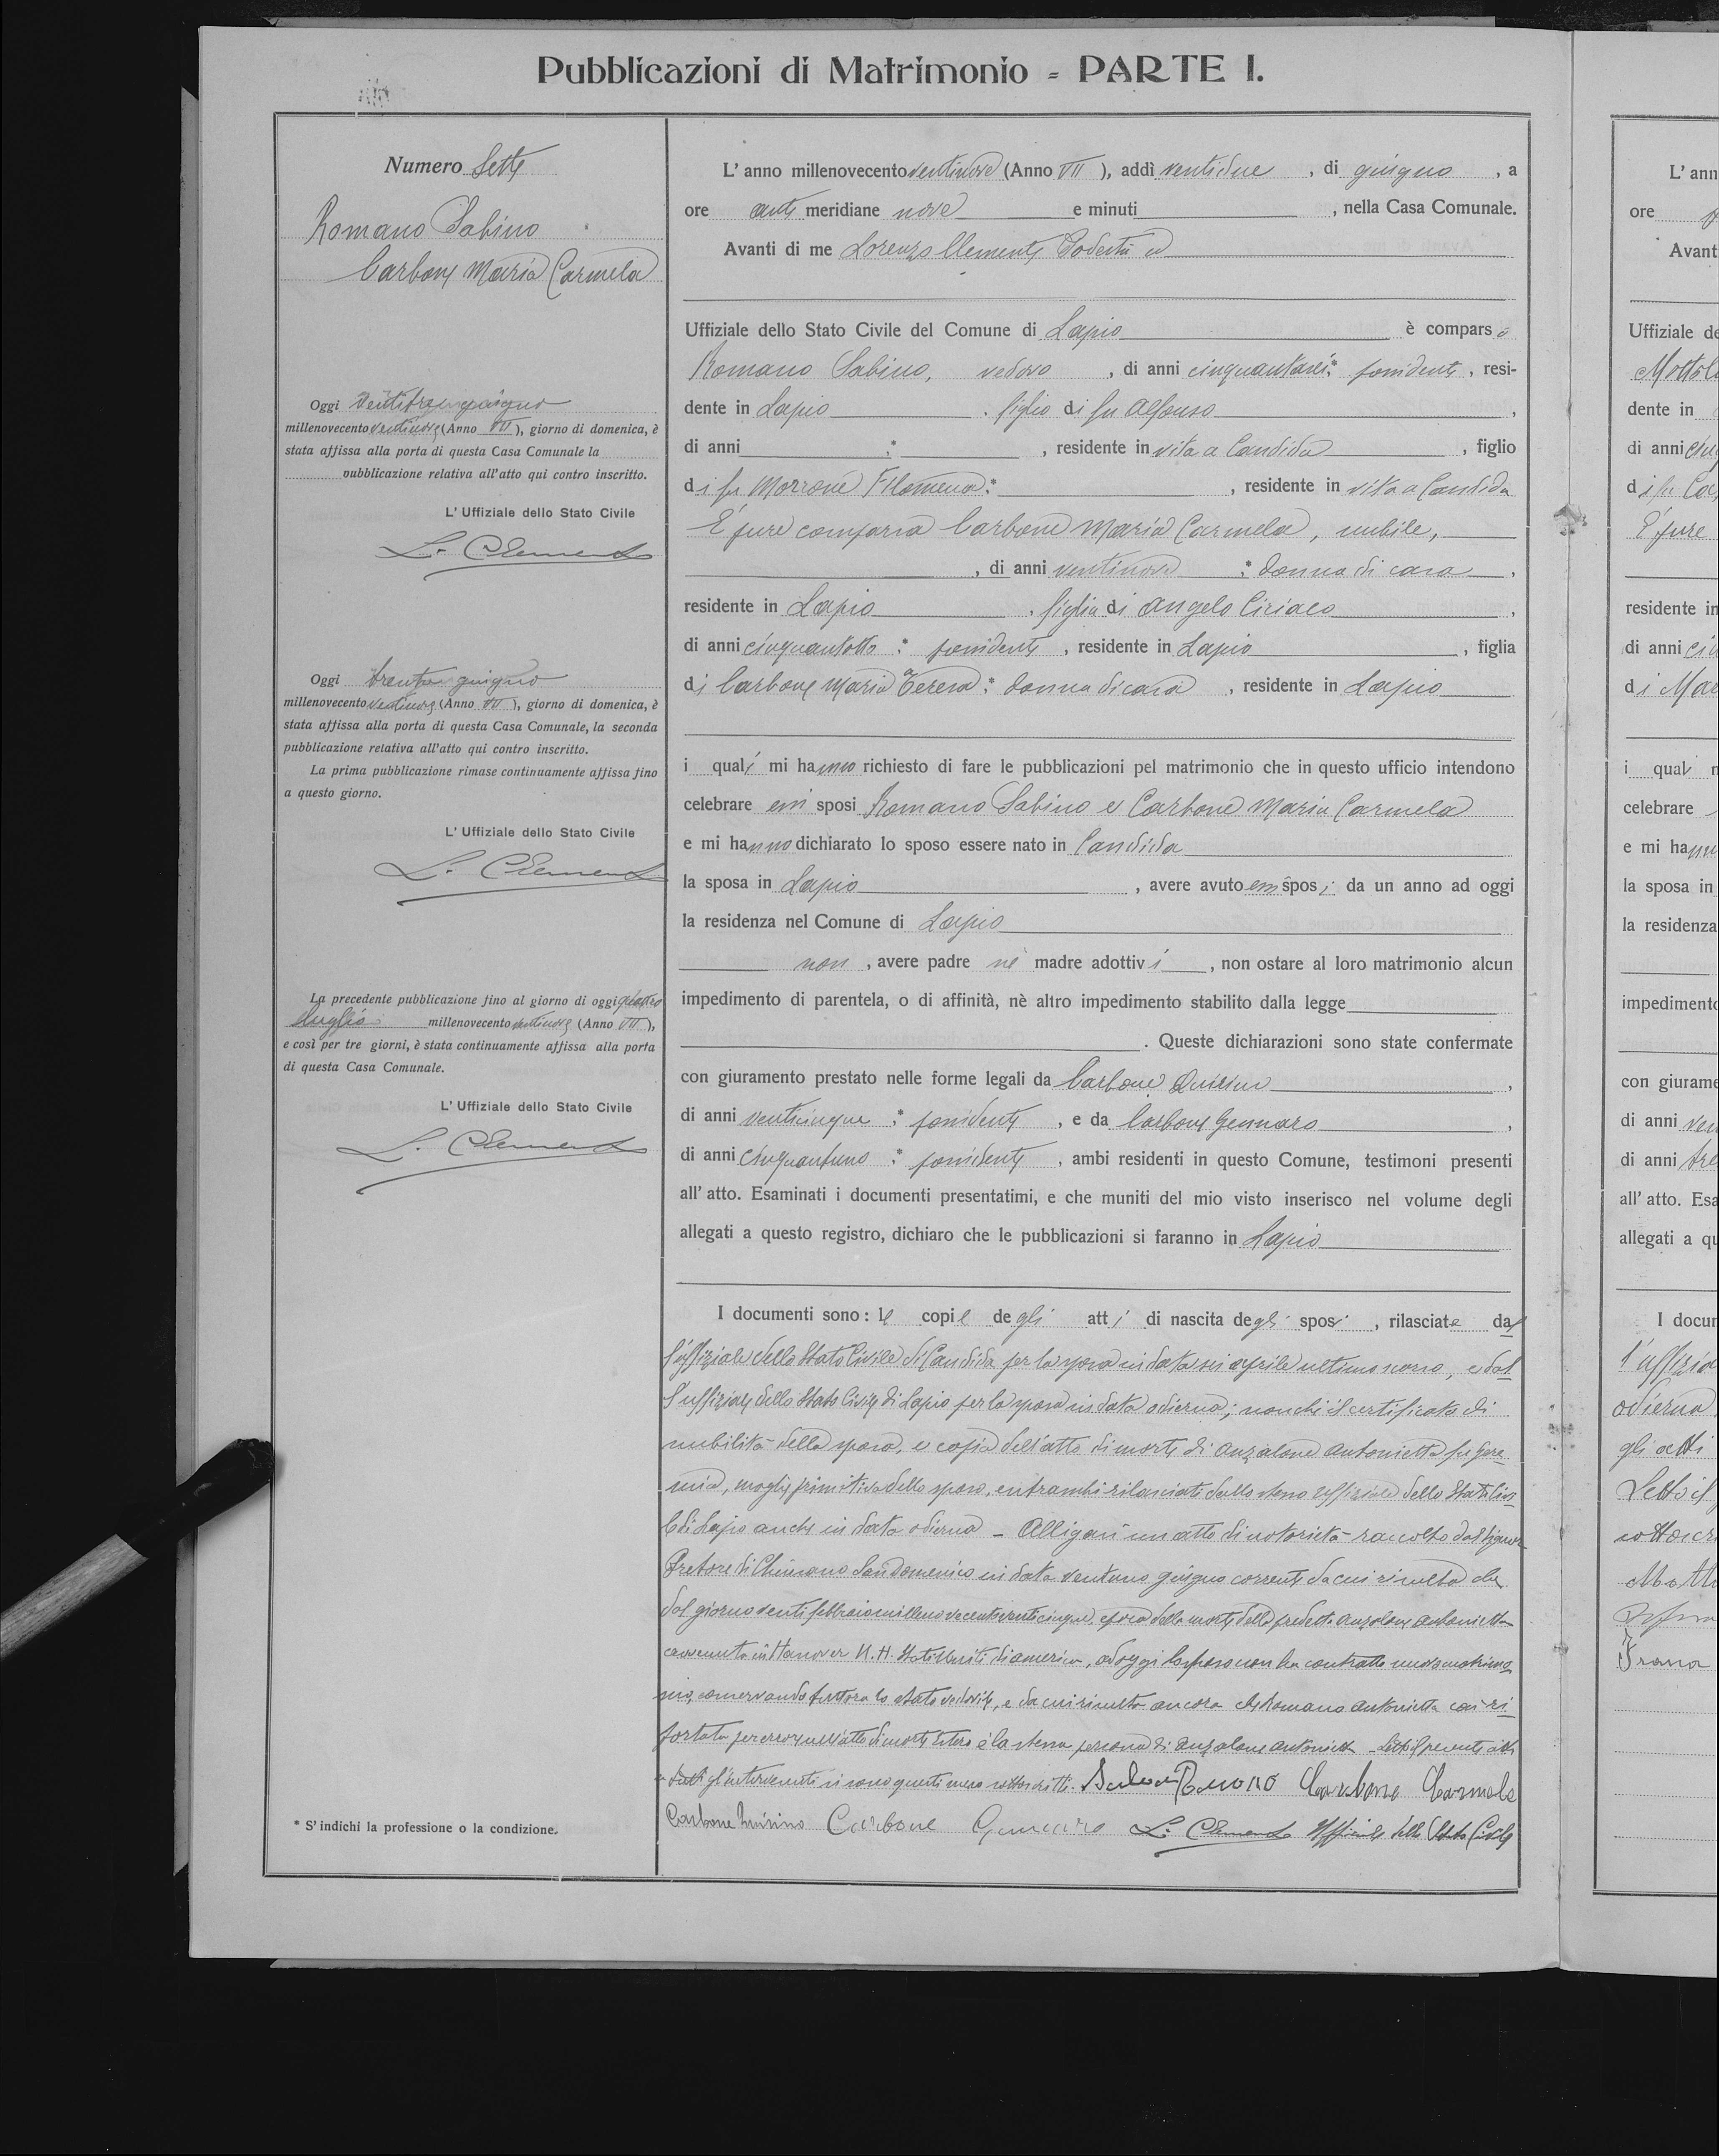 Pubblicazioni di Matrimonio = PARTE I.
Numero Sette
Romano Sabino
Carbone Maria Carmela
Oggi ventitre giugno
millenovecento ventinove (Anno VII), giorno di domenica, è
stata affissa alla porta di questa Casa Comunale la
pubblicazione relativa all'atto qui contro inscritto.
L'Uffiziale dello Stato Civile
L. Clemente
Oggi trenta giugno
millenovecento ventinove (Anno VII), giorno di domenica, è
stata affissa alla porta di questa Casa Comunale, la seconda
pubblicazione relativa all'atto qui contro inscritto.
La prima pubblicazione rimase continuamente affissa fino
a questo giorno.
L'Uffiziale dello Stato Civile
L. Clemente
La precedente pubblicazione fino al giorno di oggi quattro
luglio millenovecento ventinove (Anno VII),
e così per tre giorni, è stata continuamente affissa alla porta
di questa Casa Comunale.
L'Uffiziale dello Stato Civile
L. Clemente
* S'indichi la professione o la condizione.
L'anno millenovecento ventinove (Anno VII), addì ventidue, di giugno, a
ore anti meridiane nove e minuti , nella Casa Comunale.
Avanti di me Lorenzo Clemente Podestà ed
Uffiziale dello Stato Civile del Comune di Lapio è comparso
Romano Sabino, vedovo, di anni cinquantasei * possidente, resi-
dente in Lapio, figlio di fu Alfonso,
di anni : * , residente in vita a Candida, figlio
di fu Morrone Filomena : * , residente in vita a Candida
È pure comparsa Carbone Maria Carmela, nubile,
, di anni ventinove : * donna di casa,
residente in Lapio, figlia di Angelo Ciriaco,
di anni cinquantotto : * possidente, residente in Lapio, figlia
di Carbone Maria Teresa : * donna di casa, residente in Lapio
i quali mi hanno richiesto di fare le pubblicazioni pel matrimonio che in questo ufficio intendono
celebrare essi sposi Romano Sabino e Carbone Maria Carmela
e mi hanno dichiarato lo sposo essere nato in Candida
la sposa in Lapio, avere avuto essi sposi da un anno ad oggi
la residenza nel Comune di Lapio
non, avere padre nè madre adottivi, non ostare al loro matrimonio alcun
impedimento di parentela, o di affinità, nè altro impedimento stabilito dalla legge
. Queste dichiarazioni sono state confermate
con giuramento prestato nelle forme legali da Carbone Quirino,
di anni venticinque : * possidente, e da Carbone Gennaro,
di anni cinquantuno : * possidente, ambi residenti in questo Comune, testimoni presenti
all'atto. Esaminati i documenti presentatimi, e che muniti del mio visto inserisco nel volume degli
allegati a questo registro, dichiaro che le pubblicazioni si faranno in Lapio
I documenti sono: le copie degli atti di nascita degli sposi, rilasciate dal
l'uffiziale dello Stato Civile di Candida per lo sposo in data sei aprile ultimo scorso, e dal
l'uffiziale dello Stato Civile di Lapio per la sposa in data odierna; nonchè il certificato di
nubilità della sposa, e copia dell'atto di morte di Anzalone Antonietta fu Gere
mia, moglie primitiva dello sposo, entrambi rilasciati dallo stesso uffiziale dello Stato Civi
le di Lapio anche in data odierna - Alligasi un atto di notorietà raccolto dal Signor
Pretore di Chiusano San Domenico in data ventuno giugno corrente da cui risulta che
dal giorno venti febbraio millenovecentoventicinque, epoca della morte della predetta Anzalone Antonietta
avvenuta in Hanover N.H. Stati Uniti di America, ad oggi lo sposo non ha contratto nuovo matrimo
nio, conservando tuttora lo stato vedovile, e da cui risulta ancora che Romano Antonietta così ri
portata per errore nell'atto di morte Estero è la stessa persona di Anzalone Antonietta. Letto il presente atto
a tutti gl'intervenuti si sono questi meco sottoscritti. Sabino Romano Carbone Carmela
Carbone Quirino Carbone Gennaro L. Clemente Uffiziale dello Stato Civile
L'ann
ore
Avant
Uffiziale de
dente in
di anni
È pure
residente in
di anni
i qual
celebrare
e mi hanno
la sposa in
la residenza
impedimento
con giurame
di anni
di anni
all'atto. Esa
allegati a qu
I docur
l'uffizia
odierna
gli atti
Letto il